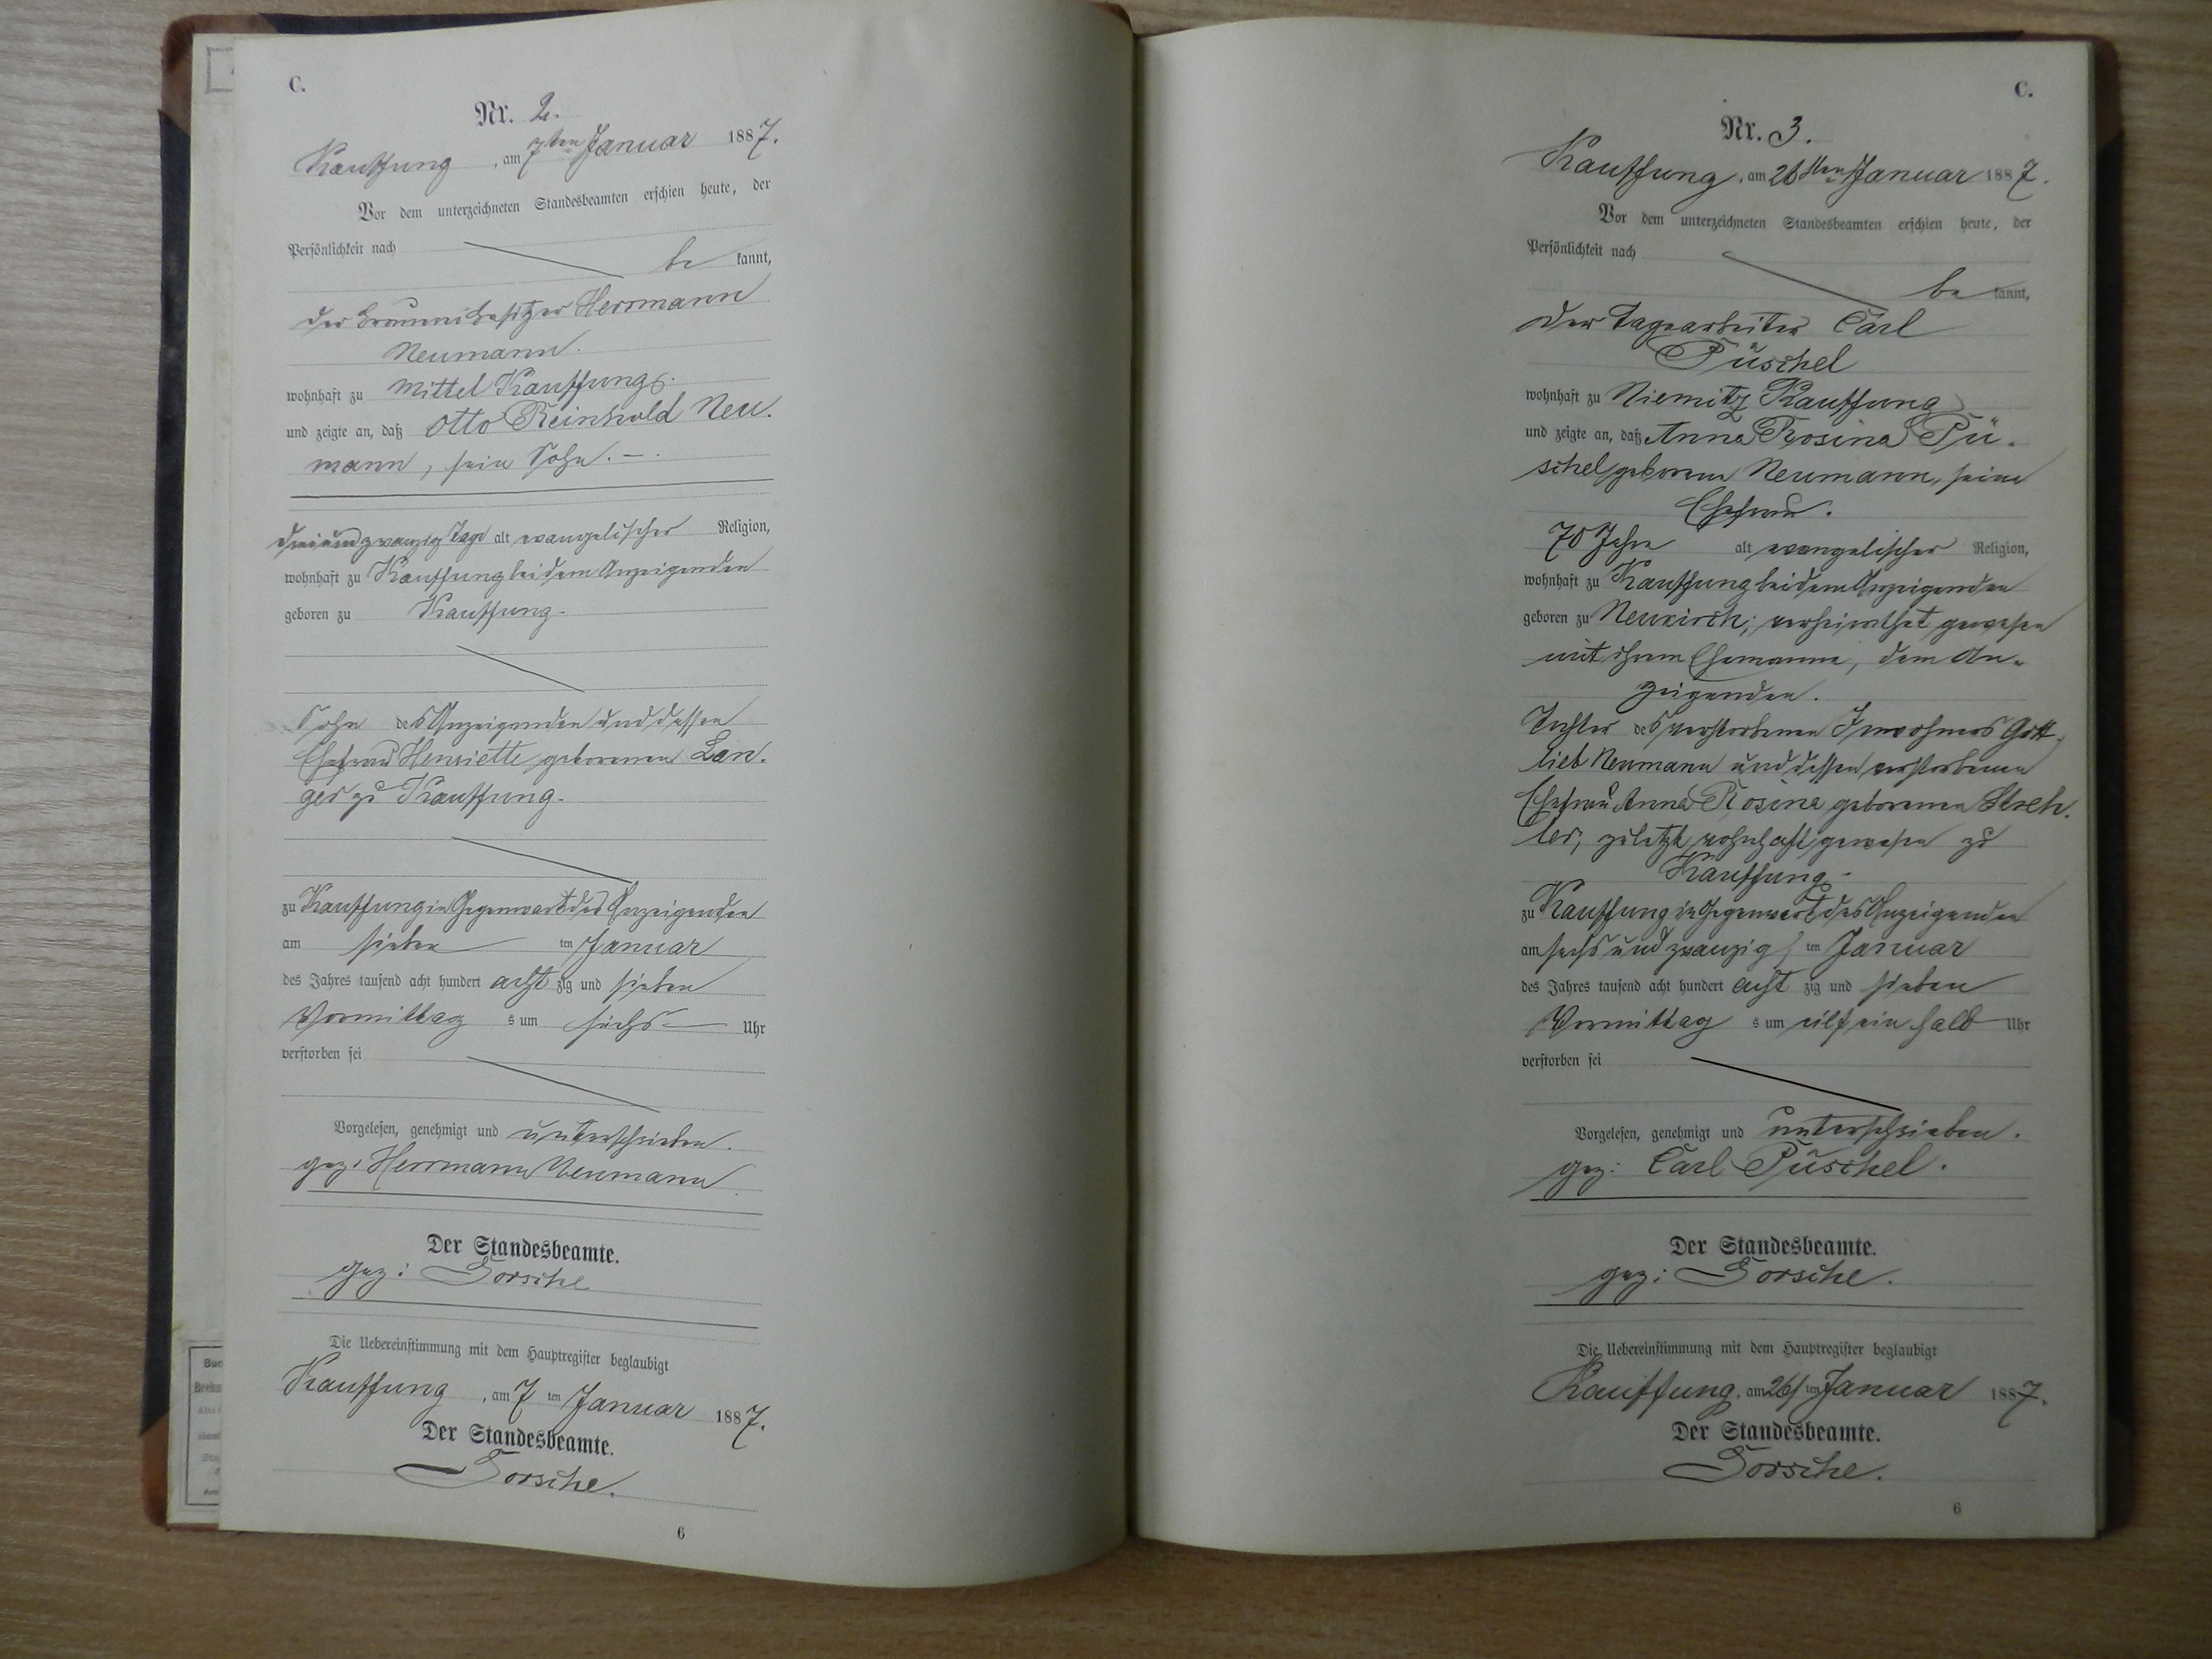 C.
Nr. 2.
Kauffung, am 7ten Januar 1887.
Vor dem unterzeichneten Standesbeamten erschien heute, der
Persönlichkeit nach
be kannt,
der Brauereibesitzer Herrmann
Neumann.
wohnhaft zu Mittel Kauffung
und zeigte an, daß Otto Reinhold Neu-
mann, sein Sohn. —.
dreiundzwanzig Tage alt evangelischer Religion,
wohnhaft zu Kauffung bei dem Anzeigenden
geboren zu Kauffung.
Sohn des Anzeigenden und dessen
Ehefrau Henriette geborenen Lan-
ger zu Kauffung.
zu Kauffung in Gegenwart des Anzeigenden
am sieben ten Januar
des Jahres tausend acht hundert acht zig und sieben
Vormittag s um sechs Uhr
verstorben sei
Vorgelesen, genehmigt und unterschrieben.
gez: Herrmann Neumann
Der Standesbeamte.
gez: Forsche
Die Uebereinstimmung mit dem Hauptregister beglaubigt
Kauffung, am 7 ten Januar 1887.
Der Standesbeamte.
Forsche.
6
C.
Nr. 3.
Kauffung, am 26ten Januar 1887.
Vor dem unterzeichneten Standesbeamten erschien heute, der
Persönlichkeit nach
be kannt,
der Tagearbeiter Carl
Püschel
wohnhaft zu Niemitz Kauffung
und zeigte an, daß Anna Rosina Pü-
schel geborene Neumann, seine
Ehefrau.
70 Jahre alt evangelischer Religion,
wohnhaft zu Kauffung bei dem Anzeigenden
geboren zu Neukirch; verheirathet gewesen
mit ihrem Ehemanne, dem An-
zeigenden.
Tochter des verstorbenen Inwohners Gott-
lieb Neumann und dessen verstorbenen
Ehefrau Anna Rosina geborenen Streh-
ler, zuletzt wohnhaft gewesen zu
Kauffung.
zu Kauffung in Gegenwart des Anzeigenden
am sechs und zwanzigs ten Januar
des Jahres tausend acht hundert acht zig und sieben
Vormittag s um eilf ein halb Uhr
verstorben sei
Vorgelesen, genehmigt und unterschrieben.
gez: Carl Püschel.
Der Standesbeamte.
gez: Forsche.
Die Uebereinstimmung mit dem Hauptregister beglaubigt
Kauffung, am 26 ten Januar 1887.
Der Standesbeamte.
Forsche.
6